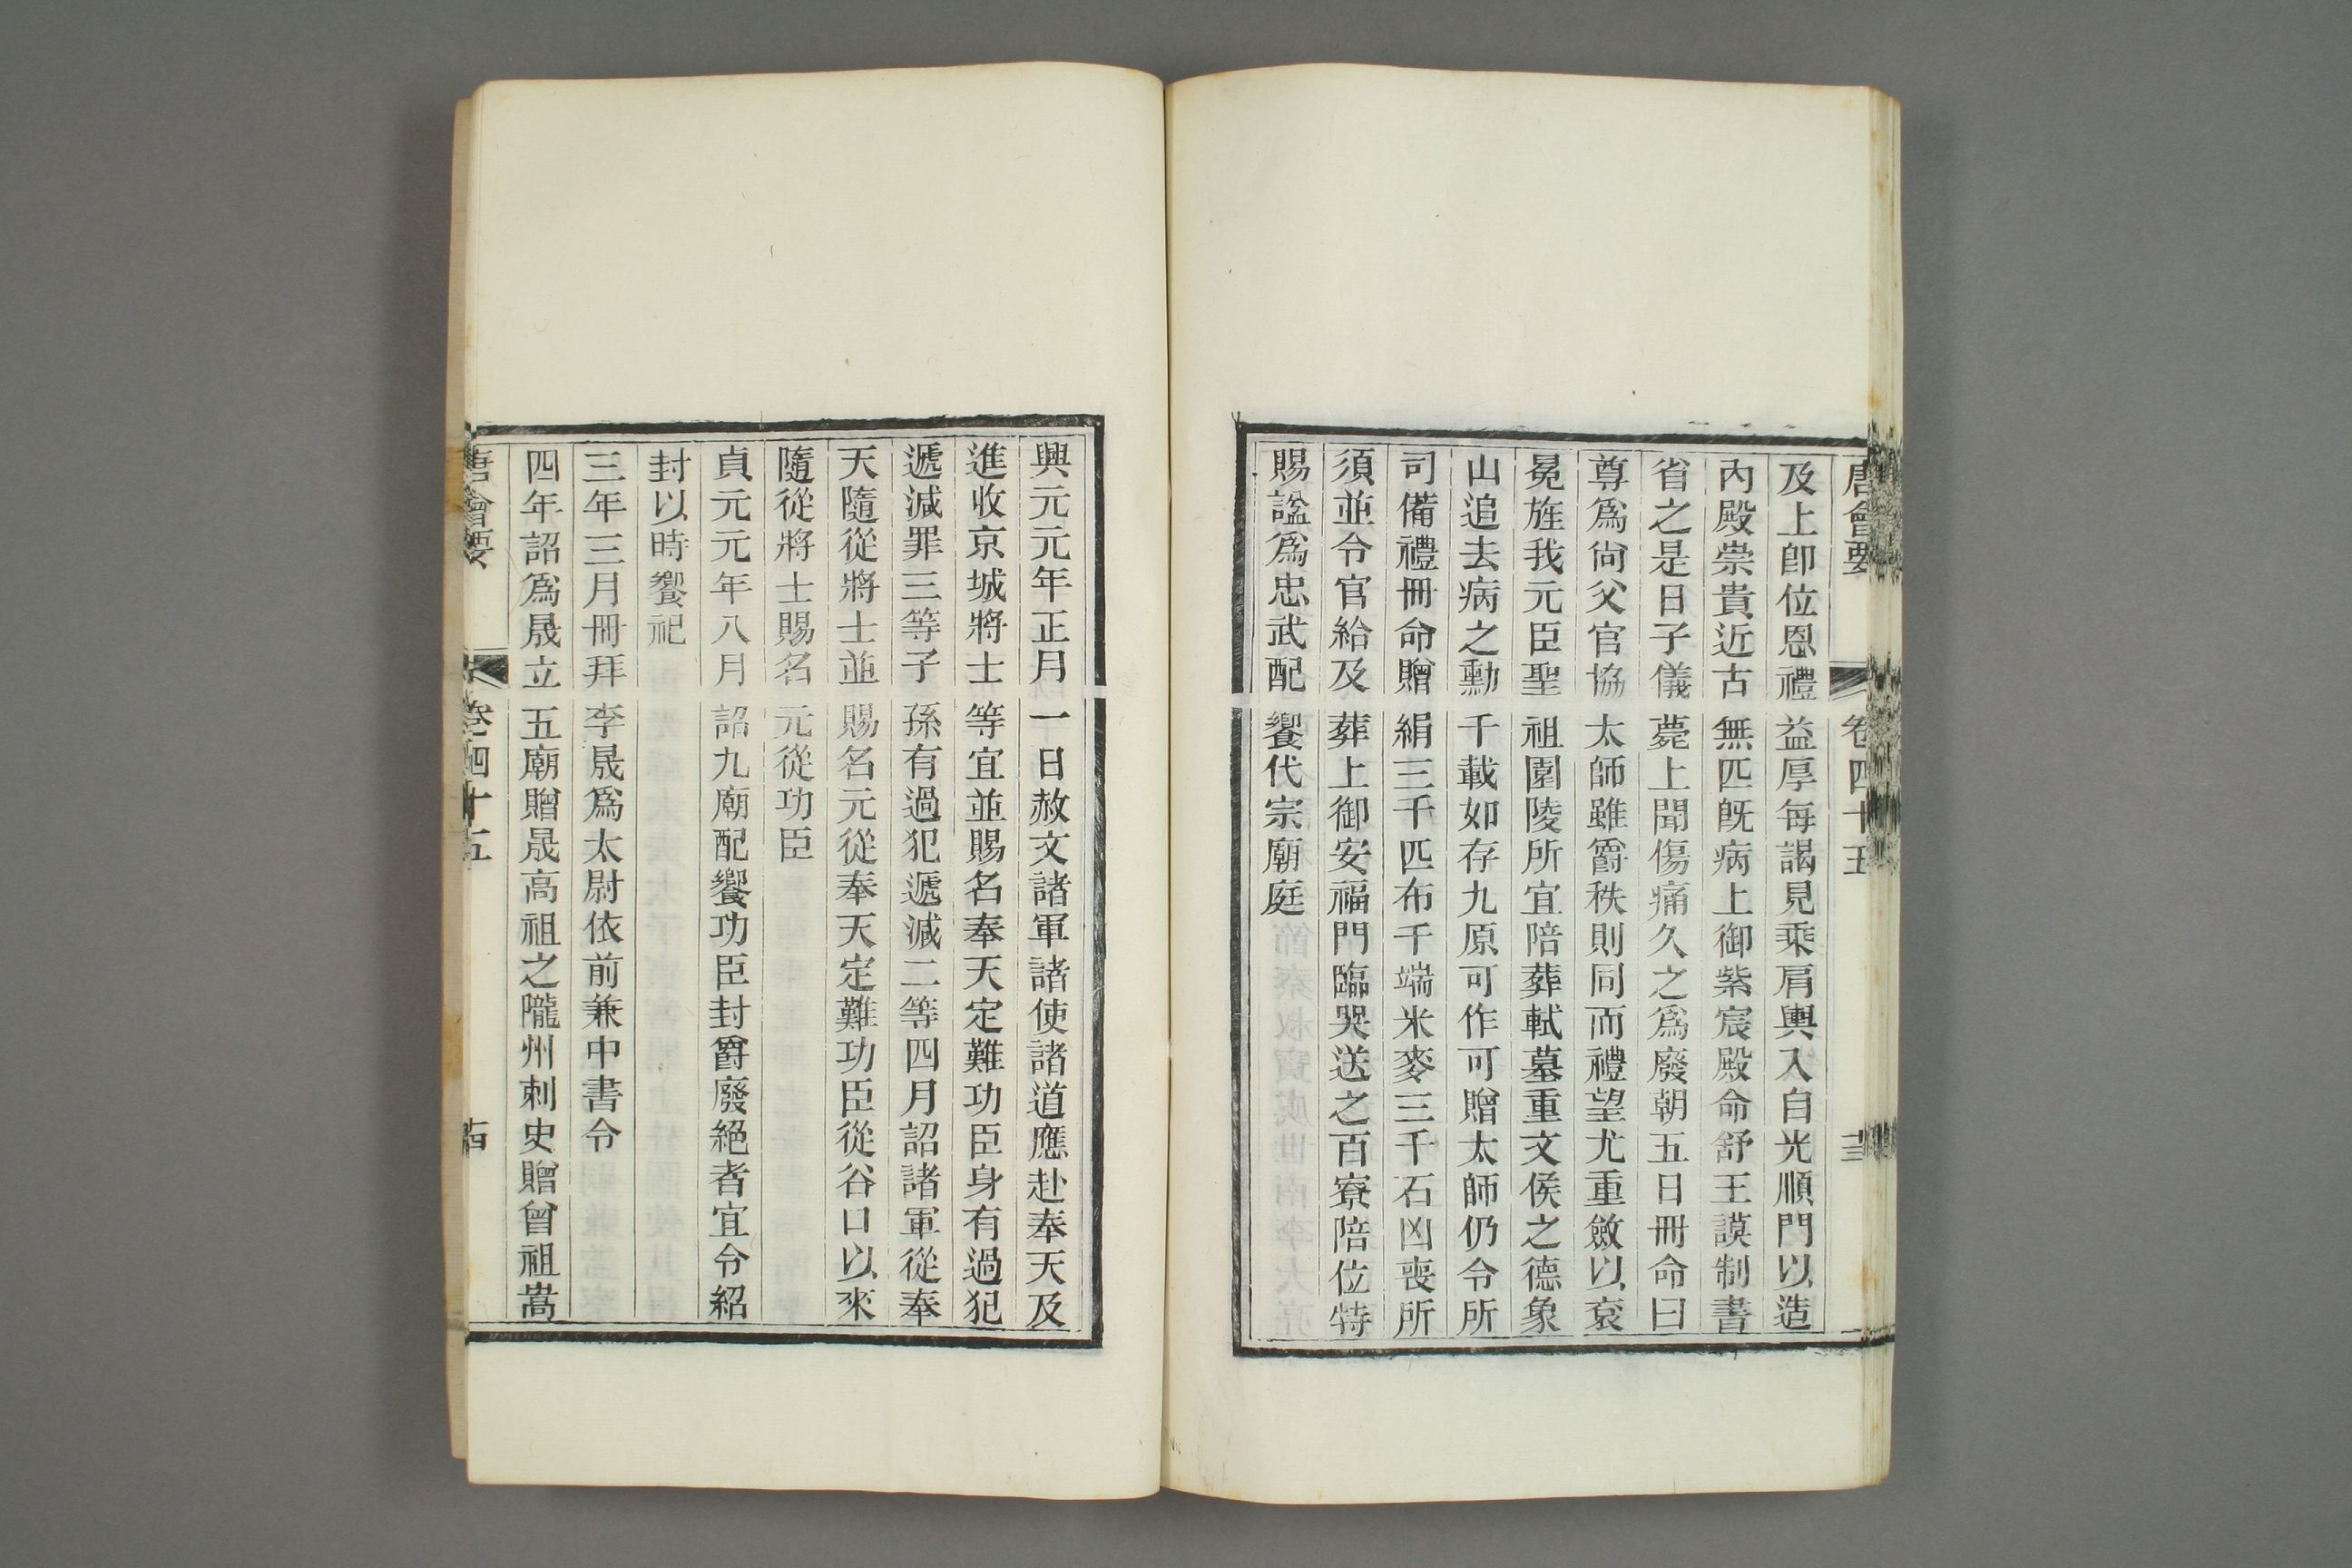 唐會要 卷四十五 十三
及上卽位恩禮益厚每謁見乘肩輿入自光順門以造
內殿崇貴近古無匹旣病上御紫宸殿命舒王謨制書
省之是日子儀薨上聞傷痛久之爲廢朝五日冊命曰
尊爲尙父官協太師雖爵秩則同而禮望尤重斂以袞
冕旌我元臣聖祖園陵所宜陪葬軾墓重文侯之德象
山追去病之勳千載如存九原可作可贈太師仍令所
司備禮冊命贈絹三千匹布千端米麥三千石凶喪所
須並令官給及葬上御安福門臨哭送之百寮陪位特
賜諡爲忠武配饗代宗廟庭
興元元年正月一日赦文諸軍諸使諸道應赴奉天及
進收京城將士等宜並賜名奉天定難功臣身有過犯
遞減罪三等子孫有過犯遞減二等四月詔諸軍從奉
天隨從將士並賜名元從奉天定難功臣從谷口以來
隨從將士賜名元從功臣
貞元元年八月詔九廟配饗功臣封爵廢絕者宜令紹
封以時饗祀
三年三月冊拜李晟爲太尉依前兼中書令
四年詔爲晟立五廟贈晟高祖之隴州刺史贈曾祖嵩
唐會要 卷四十五 十四